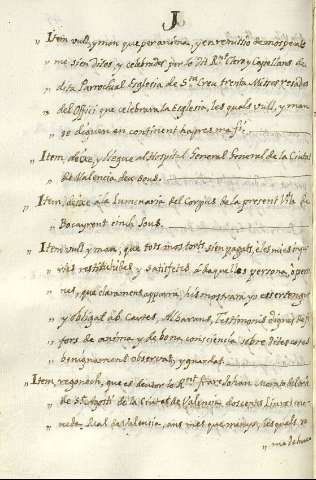 J
" Item vull, y man que per anima, y en remissio de mos pecats
" me sien dites, y celebrades per lo Dit R.nt Clero y Capellans de
" dita Parrochial Esglesia de S.ta Creu trenta Mises resades
" del Offici que celebrara la Esglesia, les quals vull, y man
" se diguen en continent hapres ma fi.
" Item, deixe, y llegue al Hospital General General de la Ciutat
" de Valencia deu sous.
" Item, deixe á la Luminaria del Corpus de la present Vila de
" Bocayrent cinch Sous.
" Item vull y man, que tots mos torts sien pagats, e les mies inju
" ries restituhides y satisfetes á aquelles persona, o perso
" nes, que clarament apparra, hi es mostrara yo esser tengut
" y obligat ab Cartes, Albarans, Testimonis dignes de fe
" fors de anima, y de bona consciencia sobre dites coses
" benignament observat, y guardat.
" Item, regonech, que es deutor lo R.nt frare Johan del orde
" de S.t Agosti de la Ciutat de Valencia docentes Lliures mo
" neda Real de Valencia, ans mes que menys, les quals
" ma dehu